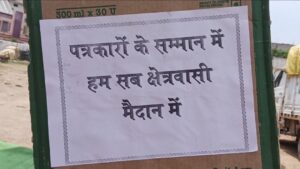 300 ml x 30 U
पत्रकारों के सम्मान में
हम सब क्षेत्रवासी
मैदान में